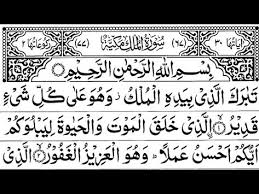 اٰيَاتُهَا ٣٠ (٦٧) سُوْرَةُ الْمُلْكِ مَكِّيَّةٌ (٧٧) رُكُوْعَاتُهَا ٢
بِسْمِ اللّٰهِ الرَّحْمٰنِ الرَّحِيْمِ
تَبٰرَكَ الَّذِيْ بِيَدِهِ الْمُلْكُ وَهُوَ عَلٰى كُلِّ شَيْءٍ
قَدِيْرُ ۝ الَّذِيْ خَلَقَ الْمَوْتَ وَالْحَيٰوةَ لِيَبْلُوَكُمْ
اَيُّكُمْ اَحْسَنُ عَمَلًا وَهُوَ الْعَزِيْزُ الْغَفُوْرُ ۝ الَّذِيْ